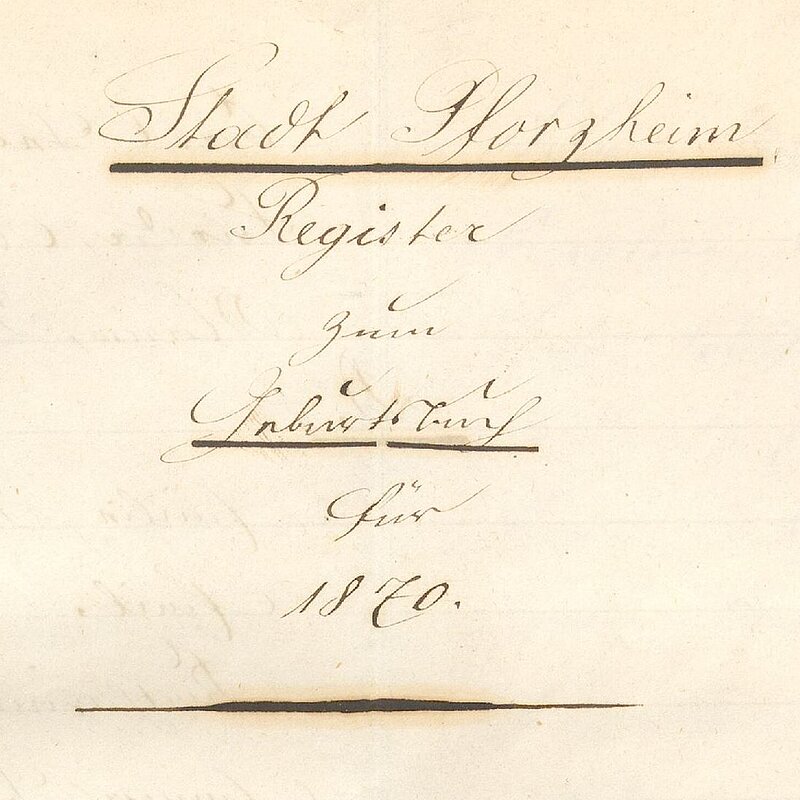 Stadt Pforzheim
Register
zum
Geburtsbuch
für
1870.